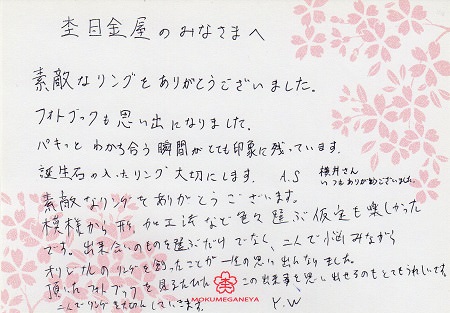 杢目金屋のみなさまへ
素敵なリングをありがとうございました。
フォトブックも思い出になりました。
パキッと わかち合う瞬間がとても印象に残っています。
誕生石の入ったリング 大切にします。 A.S
横井さん
いつもありがとうございました。
素敵なリングをありがとうございます。
模様から形、加工法など色々選ぶ仮定も楽しかった
です。出来合いのものを選ぶだけでなく、二人で悩みながら
オリジナルのリングを創ったことが一生の思い出になりました。
頂いたフォトブックを見るたびに この出来事を思い出せるのもとてもうれしいです。
二人でリングを大切にしていきます。 Y.W
MOKUMEGANEYA